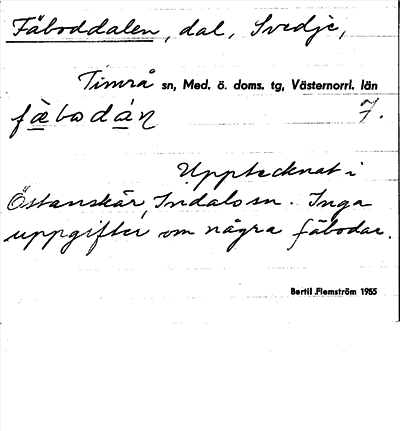 Fäboddalen, dal, Svedje,
Timrå sn, Med. ö. doms. tg, Västernorrl. län
fæbodán 7.
Upptecknat i
Östanskär, Indals sn. Inga
uppgifter om några fäbodar.
Bertil Flemström 1955